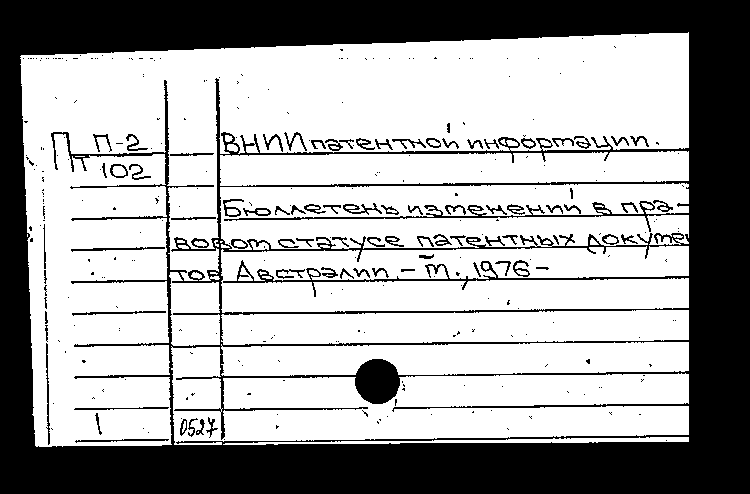 Пт П-2
102
ВНИИ патентной информации.
Бюллетень изменений в пра-
вовом статусе патентных докумен
тов Австралии. - М., 1976 -
1
0527